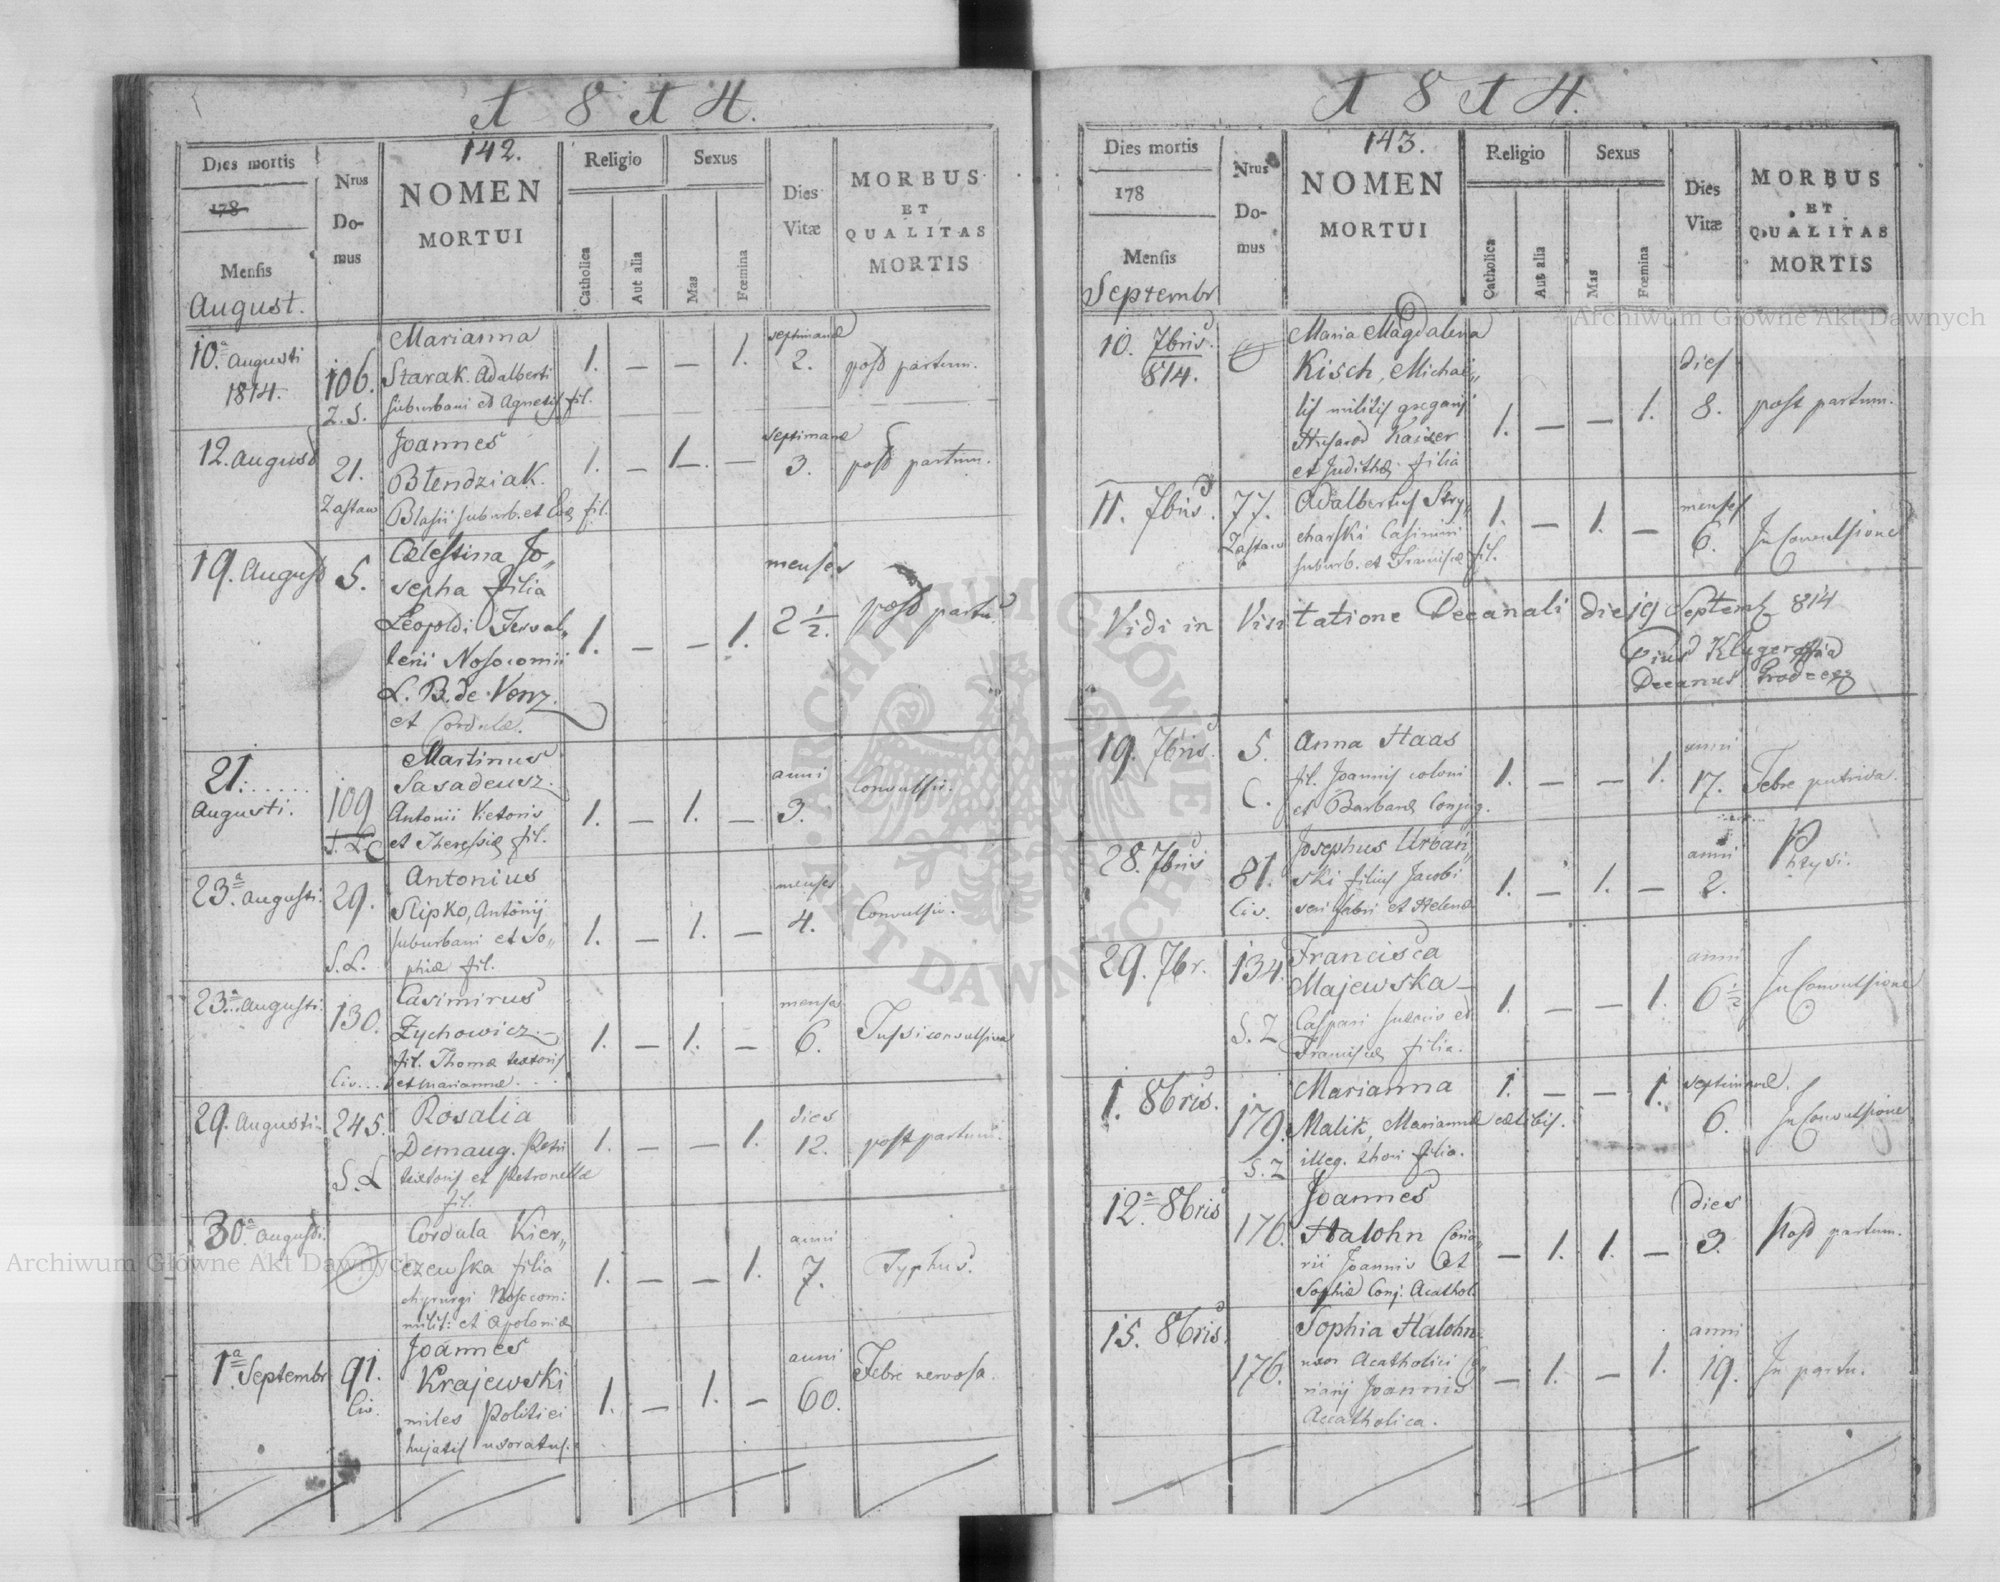 1814.
142.
Dies mortis
178
Mensis
August.
Nrus
Do-
mus
NOMEN
MORTUI
Religio
Catholica
Aut alia
Sexus
Mas
Fœmina
Dies
Vitæ
MORBUS
ET
QUALITAS
MORTIS
10.a Augusti
1814.
106.
Z. S.
Marianna
Starak. Adalberti
suburbani et Agnetis fil.
1. — — 1.
septimanæ
2.
post partum.
12. August
21.
Zastaw
Joannes
Blendziak.
Blasii suburb. et Evæ fil.
1. — 1. —
septimanæ
3.
post partum.
19. August
5.
Cælestina Jo„
sepha filia
Leopoldi
Nosocomii
L. B. de
et Cordulæ.
1. — — 1.
menses
2 1/2.
post partu
21.
Augusti.
109
S. L.
Martinus
Sasadeusz.
Antonii Vietoris
et Theresiæ fil.
1. — 1. —
anni
3.
Convulsio.
23.a Augusti.
29.
S. L.
Antonius
Slipko, Antonij
suburbani et So„
phiæ fil.
1. — 1. —
menses
4.
Convulsio.
23.a Augusti.
130.
Civ...
Casimirus
Zychowicz.
fil. Thomæ textoris
et Mariannæ...
1. — 1. —
menses
6.
Tussi convulsiva
29. Augusti.
245.
S. L
Rosalia
Demaug. Petri
textoris et Petronellæ
fil.
1. — — 1.
dies
12.
post partum.
30.a Augusti.
Cordula Kier„
czewska filia
chyrurgi Nosocom:
milit: et Apoloniæ
1. — — 1.
anni
7.
Typhus.
1.a Septembr
91.
Civ.
Joannes
Krajewski
miles Politiei
hujatis uxoratus.
1. — 1. —
anni
60.
Febre nervosa.
1814.
143.
Dies mortis
178
Mensis
Septembr
Nrus
Do-
mus
NOMEN
MORTUI
Religio
Catholica
Aut alia
Sexus
Mas
Fœmina
Dies
Vitæ
MORBUS
ET
QUALITAS
MORTIS
10. 7bris.
814.
Maria Magdalena
Kisch, Michae„
lis militis gregarii
Kaiser
et Judithæ filia
1. — — 1.
dies
8.
post partum.
11. 7bris.
77.
Zastaw
Adalbertus Stry„
charski Casimiri
suburb. et Franciscæ fil.
1. — 1. —
menses
6.
In Convulsione
Vidi in Visitatione Decanali die 19 Septemb 814
Pius Kluger
Decanus
19. 7bris.
5.
C.
Anna Haas
fil. Joannis coloni
et Barbaræ Conjug.
1. — — 1.
anni
17.
Febre putrida.
28. 7bris
81.
Civ.
Josephus Urbań„
ski filius Jacobi
seri fabri et Helenæ
1. — 1. —
anni
2.
Phtysi.
29. 7br.
134.
S. Z
Francisca
Majewska
Caspari sutoris et
Franciscæ filia.
1. — — 1.
anni
6 1/2
In Convulsione
1. 8bris.
179.
S. Z
Marianna
Malik, Mariannæ cælibis.
illeg. thori filia.
1. — — 1.
septimanæ.
6.
In Convulsione
12.a 8bris
176.
Joannes
Halohn
rii Joannis et
Sophiæ Conj. Acathol.
— 1. 1. —
dies
3.
Post partum.
15. 8bris.
176.
Sophia Halohn.
uxor Acatholici
Joannis
Accatholica.
— 1. — 1.
anni
19.
In partu.
Archiwum Główne Akt Dawnych
Archiwum Główne Akt Dawnych
ARCHIWUM GŁÓWNE AKT DAWNYCH